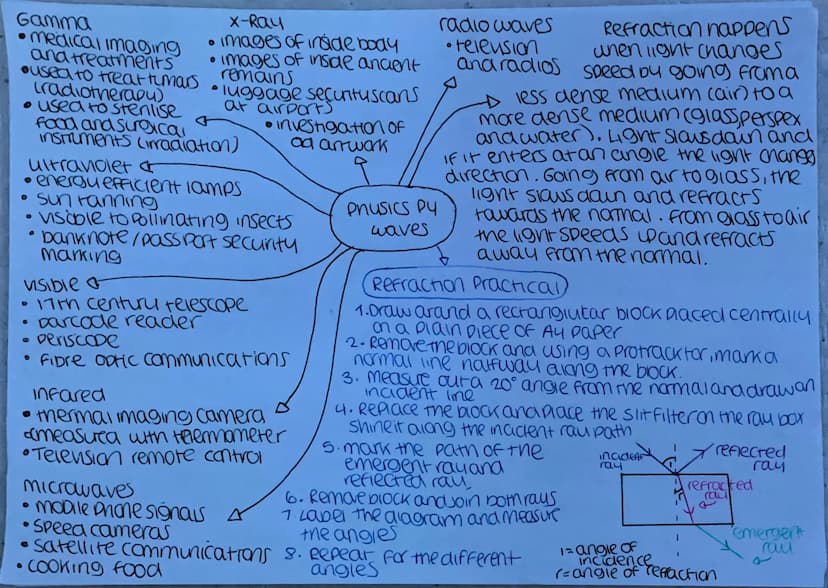 Gamma
• medical imaging
and treatments
• used to treat tumars
(radiotherapy)
• used to sterilise
food and surgical
instruments (irradiation)
X-Ray
• images of inside body
• images of inside ancient
remains
• luggage security scans
at airports
• investigation of
old artwork
radio waves
• television
and radios
Refraction happens
when light changes
speed by going from a
less dense medium (air) to a
more dense medium (glass, perspex
and water). Light slows down and
if it enters at an angle the light change
direction. Going from air to glass, the
light slows down and refracts
towards the normal. From glass to air
the light speeds up and refracts
away from the normal.
physics P4
waves
ultraviolet
• energy efficient lamps
• sun tanning
• visible to pollinating insects
• banknote/passport security
marking
visible
• 17th century telescope
• barcode reader
• periscope
• fibre optic communications
infared
• thermal imaging camera
& measured with thermometer
• Television remote control
microwaves
• mobile phone signals
• speed cameras
• satellite communications
• cooking food
Refraction Practical
1. Draw around a rectanglular block placed centrally
on a plain piece of A4 paper
2. Remove the block and using a protracktor, mark a
normal line halfway along the block.
3. measure out a 20° angle from the normal and draw an
incident line
4. Replace the block and place the slit filter on the ray box
shine it along the incident ray path
5. mark the path of the
emergent ray and
reflected ray.
6. Remove block and join both rays
7. Label the diagram and measure
the angles
8. Repeat for the different
angles
incident
ray
reflected
ray
i
r
refracted
ray
emergent
ray
i=angle of
incidence
r=angle of refraction